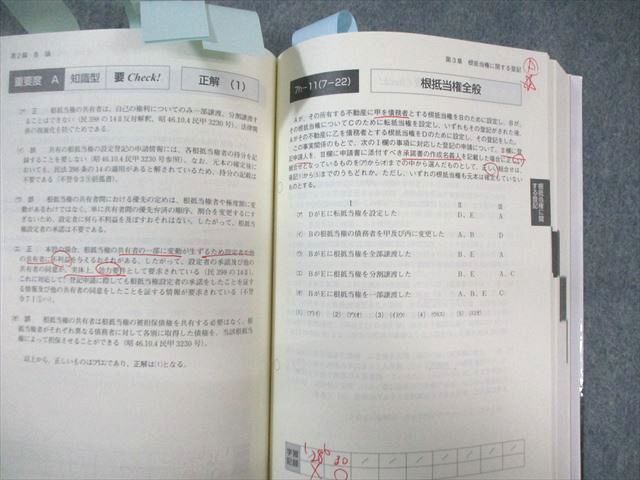 第2編 各 論
重要度 A 知識型 要 Check! 正解 (1)
(ア) 正 根抵当権の共有者は、自己の権利についてのみ一部譲渡、分割譲渡す
ることはできない(民398の14Ⅱ反対解釈、昭46.10.4民甲3230号)。法律関
係の複雑化を防ぐためである。
(イ) 誤 根抵当権の共有の設定登記の申請情報には、各根抵当権者の持分を記
録することを要しない(昭46.10.4民甲3230号
においても、民法398条の14の適用があると解されているため、持分の記載は
不要である(不登令3⑨括弧書)。
(ウ) 誤 根抵当権の共有者間における優先の定めは、根抵当権者や極度額に変
動があるわけではなく、単に共有者間の優先弁済の順序、割合を変更するにす
ぎないため、設定者に何ら不利益を及ぼすおそれはない。したがって、根抵当権
設定者の承諾は不要である。
正 本肢の場合、根抵当権の共有者の一部に変動が生ずるため設定者と他
の共有者に不利益を与えるおそれがある。したがって、設定者の承諾及び他の
共有者の同意が、実体上、効力要件として要求されている(民398の14Ⅱ)。
これに対応して、登記申請に際しても根抵当権設定者の承諾をしたことを証す
る情報及び他の共有者の同意をしたことを証する情報が要求されている(不登
令7Ⅰ⑤
(オ) 誤 根抵当権の共有者は根抵当権の被担保債権を共有する必要はなく、根抵
当権者がそれぞれ異なる債務者に対して各別に取得した債権を、当該根抵当
権によって担保させることができる(昭46.10.4民甲3230号)。
以上から、正しいものは(ア)(エ)であり、正解は(1)となる。
第3章 根抵当権に関する登記
7h-11(7-22) 根抵当権全般
Aが、その所有する不動産に甲を債務者とする根抵当権をBのために設定し、Bが、
その根抵当権についてCのために転抵当権を設定し、いずれもその登記がされた後、
Aがその不動産に乙を債務者とする根抵当権をDのために設定し、その登記をした。
この事実関係のもとで、次のⅠ欄の事項に対応した登記の申請について、Ⅱ欄に登
記申請人を、Ⅲ欄に申請書に添付すべき承諾書の作成名義人を記載した場合に正しい
組合せとなっているものを(ア)から(オ)までの中から選んだものとして、正しい組合せは、
後記(1)から(5)までのうちどれか。ただし、いずれの根抵当権も元本は確定していない
ものとする。
Ⅰ Ⅱ Ⅲ
(ア) DがEに根抵当権を設定した D、E A
(イ) Bの根抵当権の債務者を甲及び丙に変更した A、B D
(ウ) BがEに根抵当権を全部譲渡した B、E A
(エ) BがEに根抵当権を分割譲渡した B、E A、C
(オ) BがEに根抵当権を一部譲渡した A、B、E C
(1) (ア)(イ) (2) (ア)(オ) (3) (イ)(ウ) (4) (ウ)(エ) (5) (エ)(オ)
根抵当権に関
する登記
学習
記録